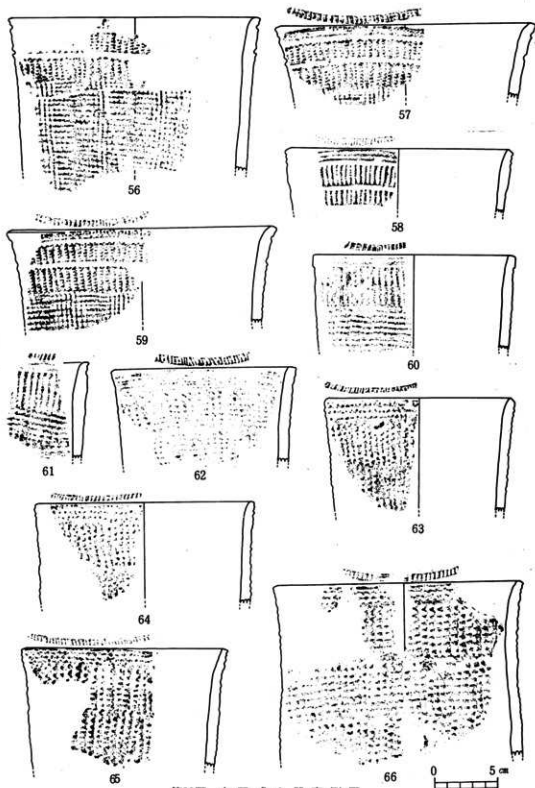 56
57
58
59
60
61
62
63
64
65
66
0 5 cm